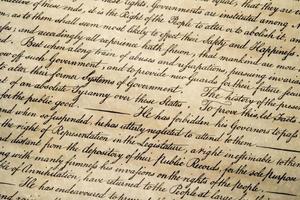 these ends, it is the Right of the People to alter or to abolish it,
as to them shall seem most likely to effect their Safety and Happiness.
and accordingly all experience hath shewn, that mankind are
But when a long train of abuses and usurpations, pursuing invaria
off such Government, and to provide new Guards for their future
to alter their former Systems of Government. The history of the prese
of an absolute Tyranny over these States. To prove this, let Facts
for the public good. He has forbidden his Governors to pass
and when so suspended, he has utterly neglected to attend to them.
the right of Representation in the Legislature, a right inestimable to the
distant from the depository of their Public Records, for the sole purpose
with manly firmness his invasions on the rights of the people.
of Annihilation, have returned to the People at large
He has endeavoured to prevent